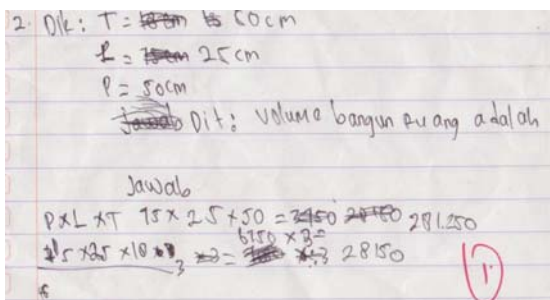 2. Dik: T = 50cm
L = 25cm
P = 50cm
Dit: Volume bangun ruang adalah
Jawab
P×L×T 75 × 25 × 50 = 281.250
6750 × 3 =
28150
1.